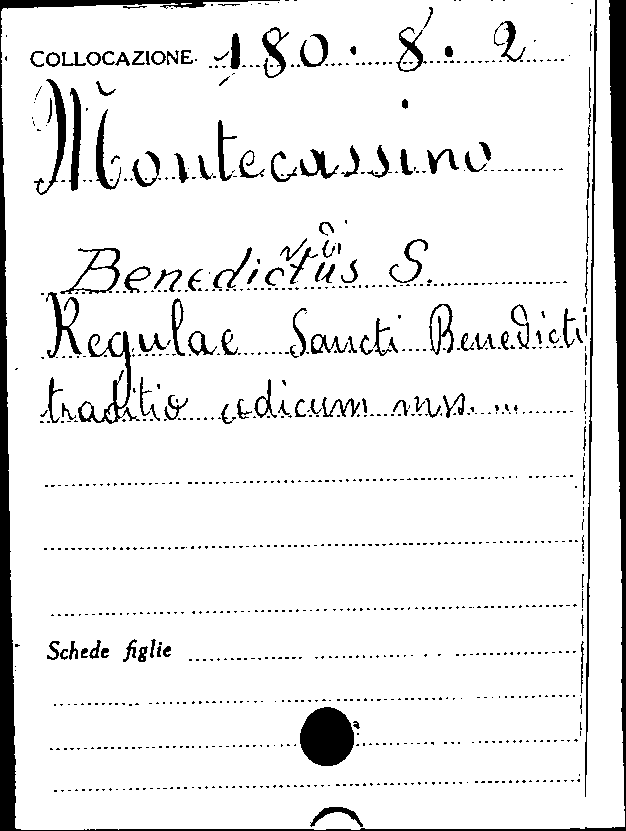 COLLOCAZIONE 180.8.2
Montecassino
Benedictus S.
Regulae Sancti Benedicti
traditio codicum mss. ...
Schede figlie